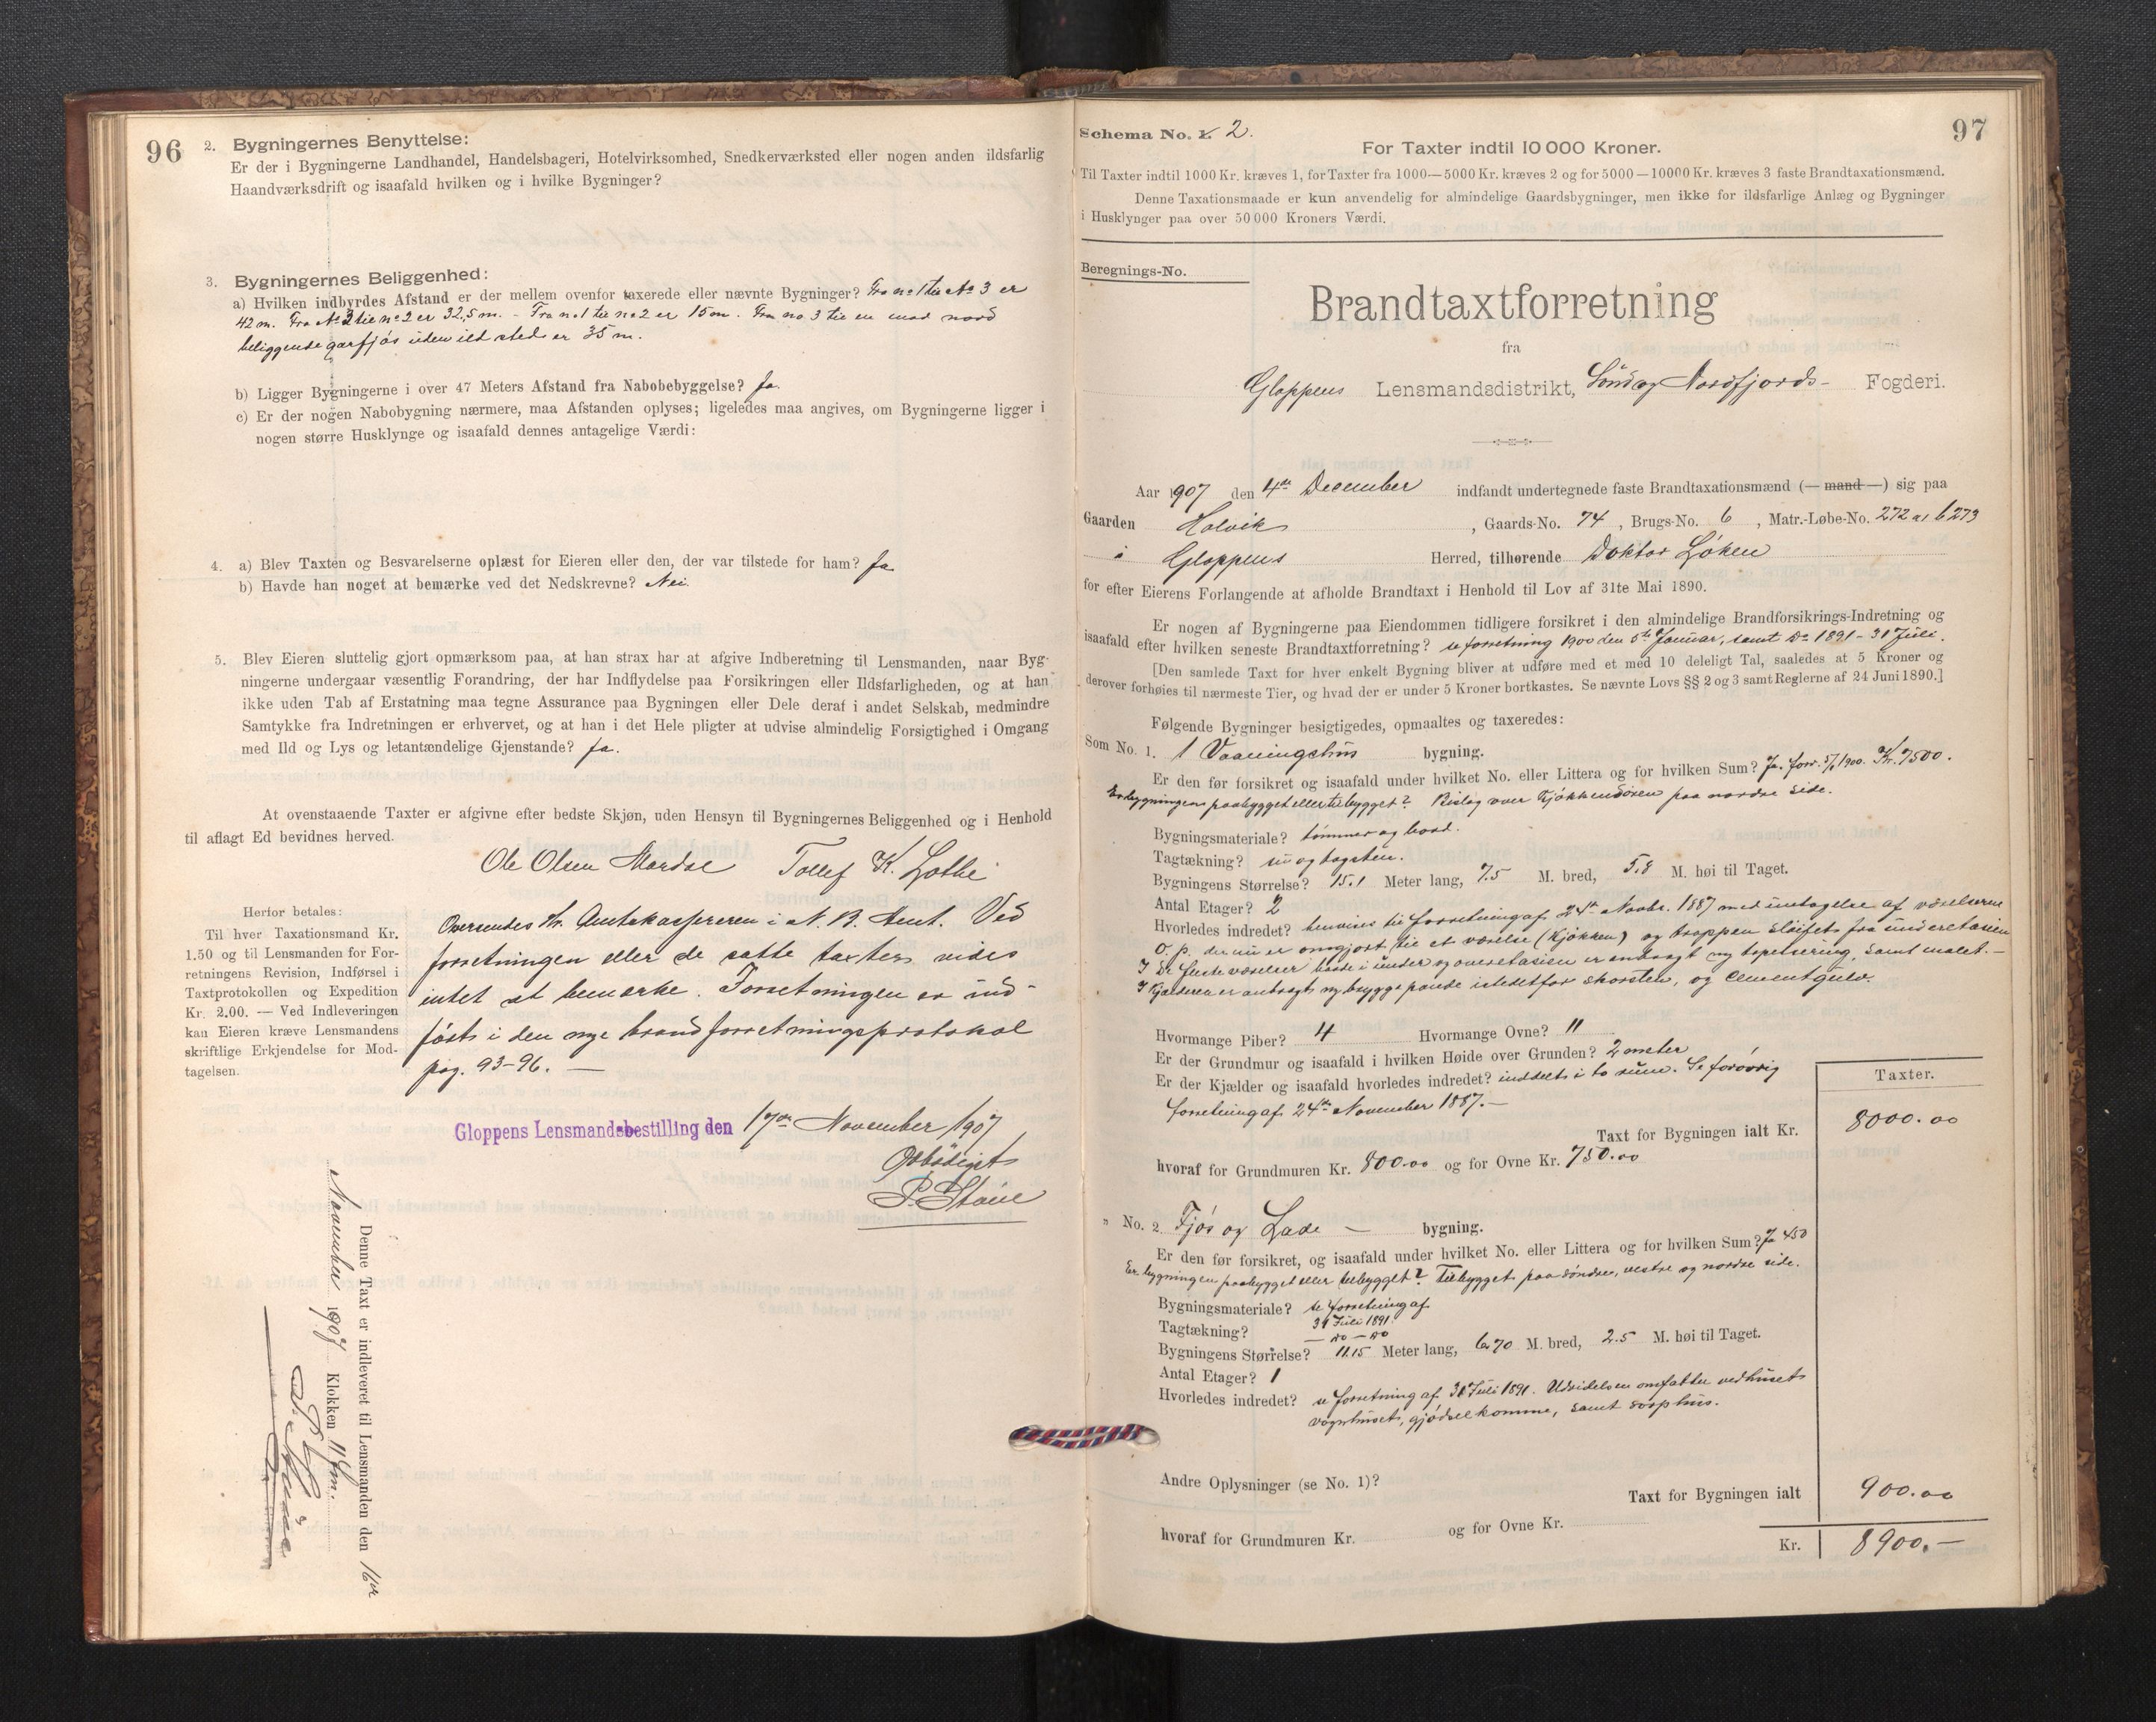 96
2. Bygningernes Benyttelse:
Er der i Bygningerne Landhandel, Handelsbageri, Hotelvirksomhed, Snedkerværksted eller nogen anden ildsfarlig
Haandværksdrift og isaafald hvilken og i hvilke Bygninger?
3. Bygningernes Beliggenhed:
a) Hvilken indbyrdes Afstand er der mellem ovenfor taxerede eller nævnte Bygninger? Fra no 1 til No 3 er
42 m. Fra No 3 til no 2 er 32,5 m. - Fra no 1 til no 2 er 15 m. Fra no 3 til en mod nord
beliggende garfjøs uden ildsted er 35 m.
b) Ligger Bygningerne i over 47 Meters Afstand fra Nabobebyggelse? Ja.
c) Er der nogen Nabobygning nærmere, maa Afstanden oplyses; ligeledes maa angives, om Bygningerne ligger i
nogen større Husklynge og isaafald dennes antagelige Værdi:
4. a) Blev Taxten og Besvarelserne oplæst for Eieren eller den, der var tilstede for ham? Ja
b) Havde han noget at bemærke ved det Nedskrevne? Nei
5. Blev Eieren sluttelig gjort opmærksom paa, at han strax har at afgive Indberetning til Lensmanden, naar Byg-
ningerne undergaar væsentlig Forandring, der har Indflydelse paa Forsikringen eller Ildsfarligheden, og at han
ikke uden Tab af Erstatning maa tegne Assurance paa Bygningen eller Dele deraf i andet Selskab, medmindre
Samtykke fra Indretningen er erhvervet, og at han i det Hele pligter at udvise almindelig Forsigtighed i Omgang
med Ild og Lys og letantændelige Gjenstande? Ja.
At ovenstaaende Taxter er afgivne efter bedste Skjøn, uden Hensyn til Bygningernes Beliggenhed og i Henhold
til aflagt Ed bevidnes herved.
Ole Olsen Mardal Tollef K. Lothe
Herfor betales:
Til hver Taxationsmand Kr.
1.50 og til Lensmanden for For-
retningens Revision, Indførsel i
Taxtprotokollen og Expedition
Kr. 2.00. — Ved Indleveringen
kan Eieren kræve Lensmandens
skriftlige Erkjendelse for Mod-
tagelsen.
Oversendes Hr. Amtskassereren i N. B. Amt. Ved
forretningen eller de satte taxter vides
intet at bemærke. Forretningen er ind-
ført i den nye brandforretningsprotokol
pag. 93-96. —
Gloppens Lensmandsbestilling den 17de November 1907
Ærbødigst
Denne Taxt er indleveret til Lensmanden den 16de
November 1907 Klokken 11 fm.
97
Schema No. 1. 2.
For Taxter indtil 10 000 Kroner.
Til Taxter indtil 1000 Kr. kræves 1, for Taxter fra 1000—5000 Kr. kræves 2 og for 5000—10000 Kr. kræves 3 faste Brandtaxationsmænd.
Denne Taxationsmaade er kun anvendelig for almindelige Gaardsbygninger, men ikke for ildsfarlige Anlæg og Bygninger
i Husklynger paa over 50 000 Kroners Værdi.
Beregnings-No.
Brandtaxtforretning
fra
Gloppens Lensmandsdistrikt, Sönd og Nordfjords- Fogderi.
Aar 1907 den 4de December indfandt undertegnede faste Brandtaxationsmænd (— mand —) sig paa
Gaarden Holvik, Gaards-No. 74, Brugs-No. 6, Matr.-Løbe-No. 272 a, b 273
i Gloppens Herred, tilhørende Doktor Løken
for efter Eierens Forlangende at afholde Brandtaxt i Henhold til Lov af 31te Mai 1890.
Er nogen af Bygningerne paa Eiendommen tidligere forsikret i den almindelige Brandforsikrings-Indretning og
isaafald efter hvilken seneste Brandtaxtforretning? se forretning 1900 den 5te Januar, samt Do 1891 - 31 Juli.
[Den samlede Taxt for hver enkelt Bygning bliver at udføre med et med 10 deleligt Tal, saaledes at 5 Kroner og
derover forhøies til nærmeste Tier, og hvad der er under 5 Kroner bortkastes. Se nævnte Lovs §§ 2 og 3 samt Reglerne af 24 Juni 1890.]
Følgende Bygninger besigtigedes, opmaaltes og taxeredes:
Som No. 1. 1 Vaaningshus bygning.
Er den før forsikret og isaafald under hvilket No. eller Littera og for hvilken Sum? Ja. forr. 5/1 1900. Kr. 7500.
Er bygningen paabygget eller tilbygget? Bislag over Kjøkkendøren paa nordre side.
Bygningsmateriale? tømmer og bord.
Tagtækning? su og tagsten.
Bygningens Størrelse? 15.1 Meter lang, 7.5 M. bred, 5.8 M. høi til Taget.
Antal Etager? 2
Hvorledes indredet? henvises til forretning af 24de Novbr. 1887 med undtagelse af værelserne
O. p. der nu er omgjort til et værelse (Kjøkken) og trappen sløifet fra underetasien
I de fleste værelser baade i under og overetasien er anbragt ny tapetsering, samt malet. —
I Kjælderen er anbragt ny bryggepande istedetfor skorsten, og Cementgulv.
Hvormange Piber? 4 Hvormange Ovne? 11
Er der Grundmur og isaafald i hvilken Høide over Grunden? 2 meter
Er der Kjælder og isaafald hvorledes indredet? inddelt i to rum. Se forøvrig
forretning af 24de November 1887. —
Taxter.
Taxt for Bygningen ialt Kr. 8000.00
hvoraf for Grundmuren Kr. 800.00 og for Ovne Kr. 750.00
" No. 2 Fjøs og Lade — bygning.
Er den før forsikret, og isaafald under hvilket No. eller Littera og for hvilken Sum? Ja 450
Er bygningen paabygget eller tilbygget? Tilbygget paa søndre, vestre og nordre side.
Bygningsmateriale? se forretning af
31 Juli 1891.
Tagtækning? — do — do
Bygningens Størrelse? 11.15 Meter lang, 6.70 M. bred, 2.5 M. høi til Taget.
Antal Etager? 1
Hvorledes indredet? se forretning af 31 Juli 1891. Udvidelsen omfatter vedhuset
vognhuset, gjødselkomme, samt sophus.
Andre Oplysninger (se No. 1)?
Taxt for Bygningen ialt 900.00
hvoraf for Grundmuren Kr. og for Ovne Kr.
Kr. 8900. —